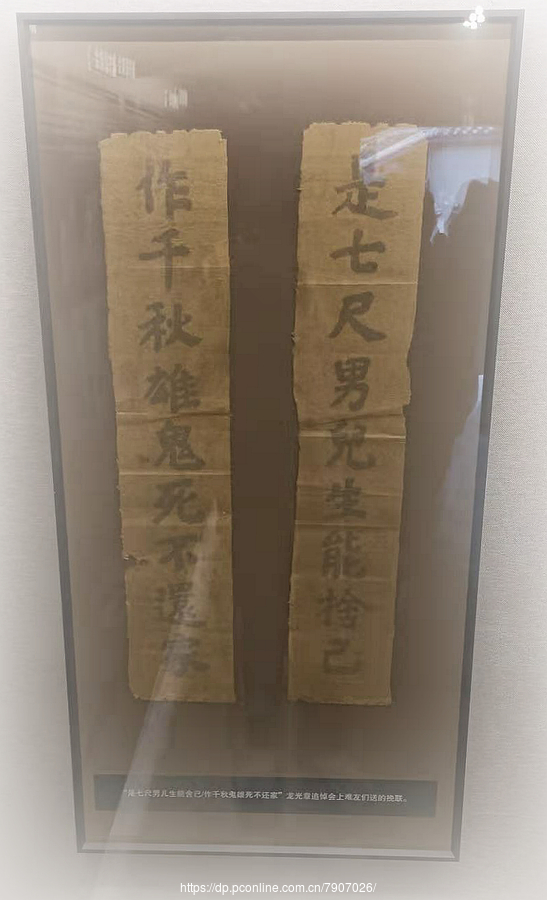 是七尺男兒生能捨己
作千秋雄鬼死不還家
"是七尺男儿生能舍己/作千秋鬼雄死不还家" 龙光章追悼会上难友们送的挽联。
https://dp.pconline.com.cn/7907026/